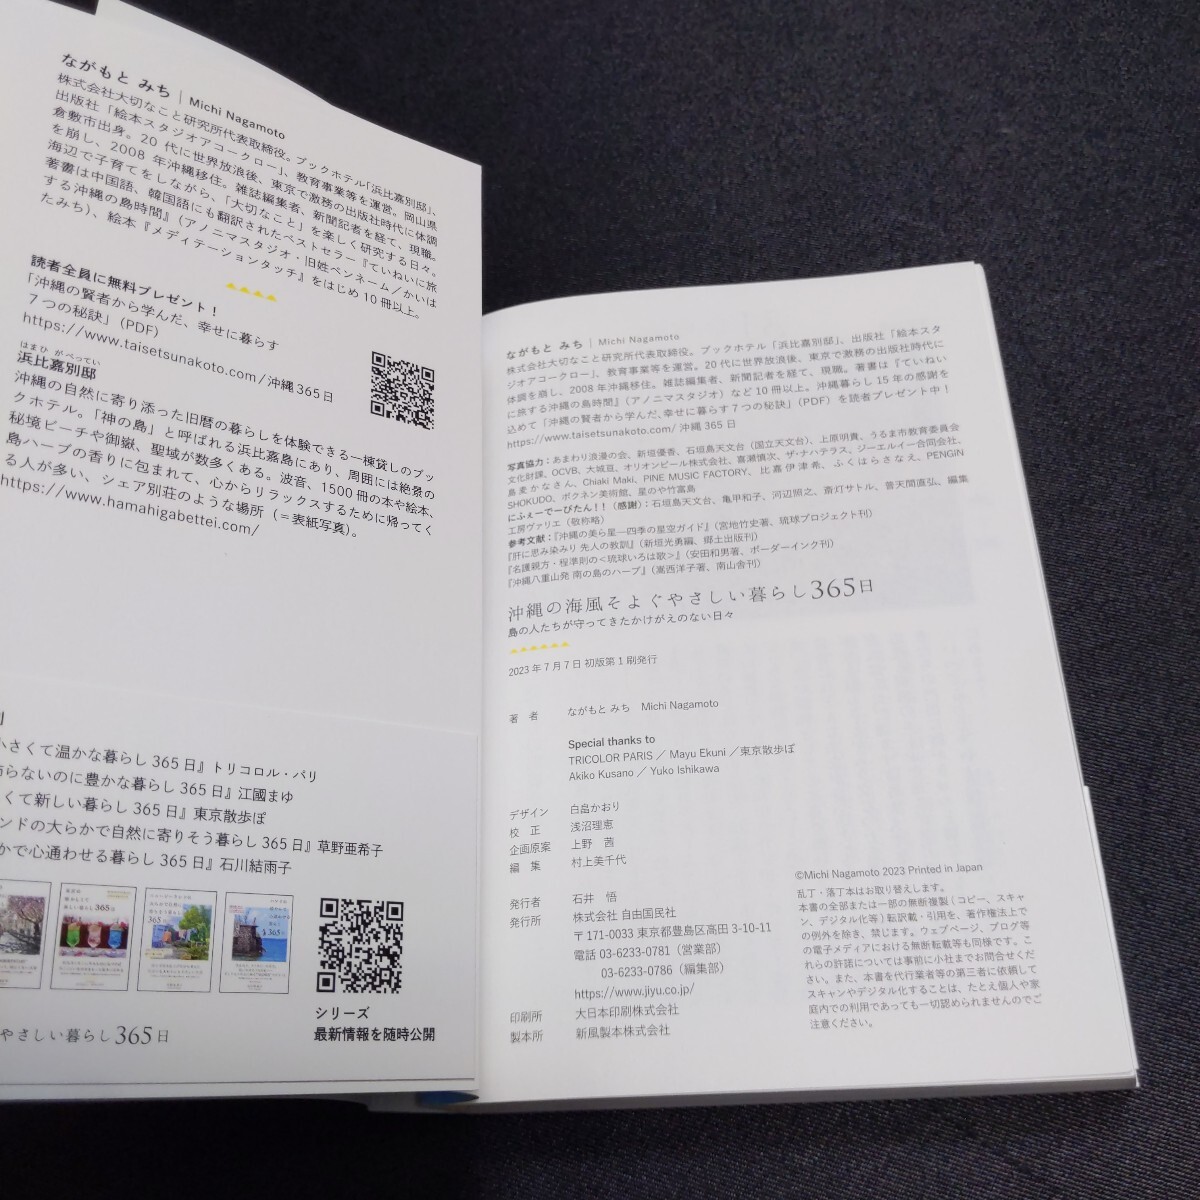 ながもと みち | Michi Nagamoto
株式会社大切なこと研究所代表取締役。ブックホテル「浜比嘉別邸」、
出版社「絵本スタジオアコークロー」、教育事業等を運営。岡山県
倉敷市出身。20 代に世界放浪後、東京で激務の出版社時代に体調
を崩し、2008 年沖縄移住。雑誌編集者、新聞記者を経て、現職。
海辺で子育てをしながら、「大切なこと」を楽しく研究する日々。
著書は中国語、韓国語にも翻訳されたベストセラー『ていねいに旅
する沖縄の島時間』（アノニマスタジオ・旧姓ペンネーム／かいは
たみち）、絵本『メディテーションタッチ』をはじめ 10 冊以上。
読者全員に無料プレゼント！
「沖縄の賢者から学んだ、幸せに暮らす
７つの秘訣」（PDF）
https://www.taisetsunakoto.com/沖縄 365 日
はまひ がべってい
浜比嘉別邸
沖縄の自然に寄り添った旧暦の暮らしを体験できる一棟貸しのブッ
クホテル。「神の島」と呼ばれる浜比嘉島にあり、周囲には絶景の
秘境ビーチや御嶽、聖域が数多くある。波音、1500 冊の本や絵本、
島ハーブの香りに包まれて、心からリラックスするために帰ってく
る人が多い、シェア別荘のような場所（＝表紙写真）。
https://www.hamahigabettei.com/
小さくて温かな暮らし 365 日』トリコロル・パリ
らないのに豊かな暮らし 365 日』江國まゆ
くて新しい暮らし 365 日』東京散歩ぽ
ンドの大らかで自然に寄りそう暮らし 365 日』草野亜希子
かで心通わせる暮らし 365 日』石川結雨子
シリーズ
最新情報を随時公開
やさしい暮らし 365 日
ながもと みち | Michi Nagamoto
株式会社大切なこと研究所代表取締役。ブックホテル「浜比嘉別邸」、出版社「絵本スタ
ジオアコークロー」、教育事業等を運営。20 代に世界放浪後、東京で激務の出版社時代に
体調を崩し、2008 年沖縄移住。雑誌編集者、新聞記者を経て、現職。著書は『ていねい
に旅する沖縄の島時間』（アノニマスタジオ）など 10 冊以上。沖縄暮らし 15 年の感謝を
込めて「沖縄の賢者から学んだ、幸せに暮らす７つの秘訣」（PDF）を読者プレゼント中！
https://www.taisetsunakoto.com/ 沖縄 365 日
写真協力：あまわり浪漫の会、新垣優香、石垣島天文台（国立天文台）、上原明貴、うるま市教育委員会
文化財課、OCVB、大城亘、オリオンビール株式会社、喜瀬慎次、ザ・ナハテラス、ジーエルイー合同会社、
島麦かなさん、Chiaki Maki、PINE MUSIC FACTORY、比嘉伊津希、ふくはらさなえ、PENGiN
SHOKUDO、ボクネン美術館、星のや竹富島
にふぇーでーびたん！！（感謝）：石垣島天文台、亀甲和子、河辺照之、斎灯サトル、普天間直弘、編集
工房ヴァリエ（敬称略）
参考文献：『沖縄の美ら星―四季の星空ガイド』（宮地竹史著、琉球プロジェクト刊）
『肝に思み染みり 先人の教訓』（新垣光勇編、郷土出版刊）
『名護親方・程準則の＜琉球いろは歌＞』（安田和男著、ボーダーインク刊）
『沖縄八重山発 南の島のハーブ』（嵩西洋子著、南山舎刊）
沖縄の海風そよぐやさしい暮らし 365 日
島の人たちが守ってきたかけがえのない日々
2023 年 7 月 7 日 初版第 1 刷発行
著　者　ながもと みち　Michi Nagamoto
Special thanks to
TRICOLOR PARIS ／ Mayu Ekuni ／東京散歩ぽ
Akiko Kusano ／ Yuko Ishikawa
デザイン　白畠かおり
校　正　浅沼理恵
企画原案　上野　茜
編　集　村上美千代
発行者　石井　悟
発行所　株式会社 自由国民社
〒171-0033 東京都豊島区高田 3-10-11
電話 03-6233-0781（営業部）
03-6233-0786（編集部）
https://www.jiyu.co.jp/
印刷所　大日本印刷株式会社
製本所　新風製本株式会社
©Michi Nagamoto 2023 Printed in Japan
乱丁・落丁本はお取り替えします。
本書の全部または一部の無断複製（コピー、スキャ
ン、デジタル化等）転訳載・引用を、著作権法上で
の例外を除き、禁じます。ウェブページ、ブログ等
の電子メディアにおける無断転載等も同様です。こ
れらの許諾については事前に小社までお問合せくだ
さい。また、本書を代行業者等の第三者に依頼して
スキャンやデジタル化することは、たとえ個人や家
庭内での利用であっても一切認められませんのでご
注意ください。